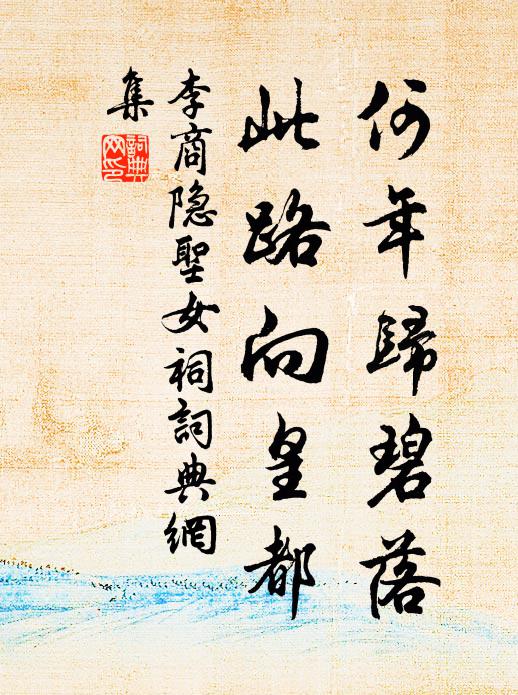 何年歸碧落
此路向皇都
李商隐聖女祠詞典網
集
詞典
网印